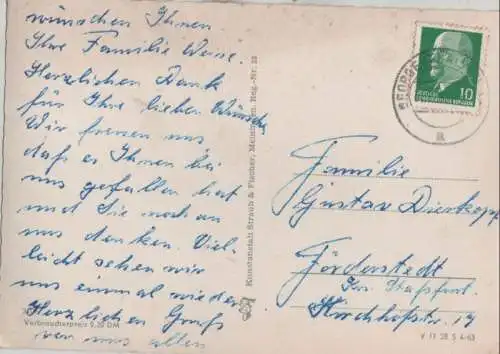 wünschen Ihnen.
Ihre Familie Weise.
Herzlichen Dank
für Ihre lieben Wünsche
Wir freuen uns
daß es Ihnen bei
uns gefallen hat
und Sie noch an
uns denken. Viel-
leicht sehen wir
uns einmal wieder
Herzlichen Gruß
von uns allen
Verbraucherpreis 0,20 DM
Kunstanstalt Straub & Fischer, Meiningen, Reg.-Nr.
10
Familie
Gustav Dierkopf
Förderstedt
Krs. Staßfurt.
Kirchhofstr. 14
V 11 28 S 4-63